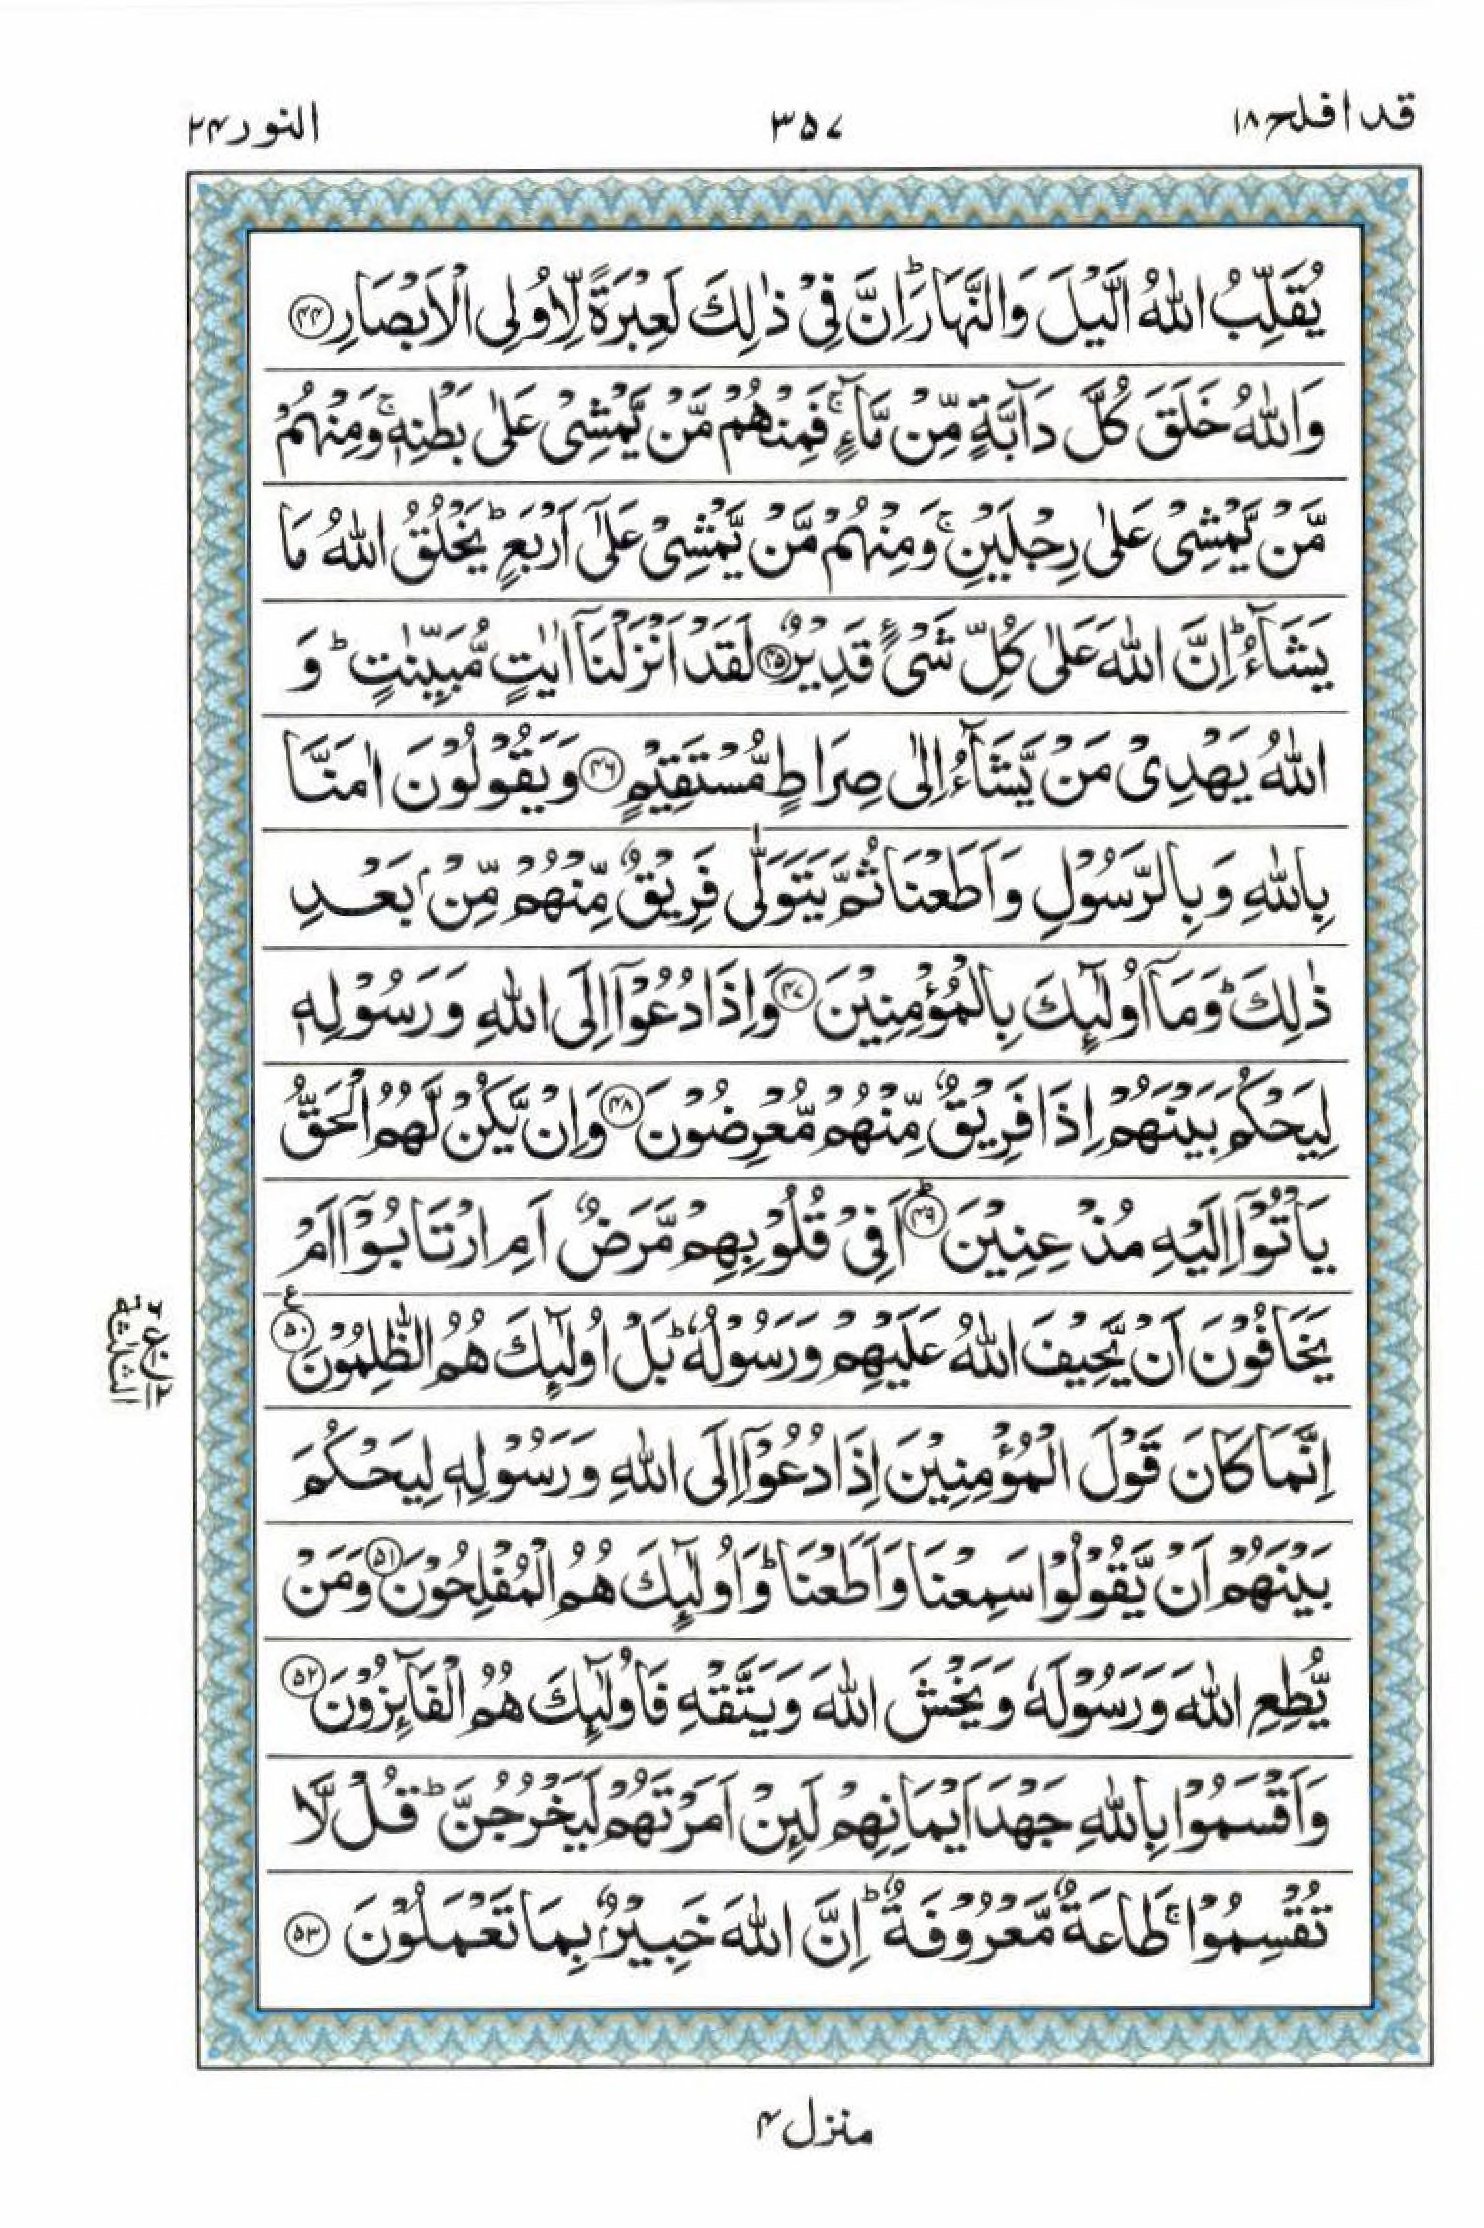 قد افلح ١٨
٣٥٧
النور ٢٤
يُقَلِّبُ اللّٰهُ الَّيْلَ وَالنَّهَارَ ؕ اِنَّ فِيْ ذٰلِكَ لَعِبْرَةً لِّاُولِي الْاَبْصَارِ ﴿٤٤﴾
وَاللّٰهُ خَلَقَ كُلَّ دَآبَّةٍ مِّنْ مَّآءٍ ۚ فَمِنْهُمْ مَّنْ يَّمْشِيْ عَلٰى بَطْنِهٖ ۚ وَمِنْهُمْ
مَّنْ يَّمْشِيْ عَلٰى رِجْلَيْنِ ۚ وَمِنْهُمْ مَّنْ يَّمْشِيْ عَلٰٓى اَرْبَعٍ ؕ يَخْلُقُ اللّٰهُ مَا
يَشَآءُ ؕ اِنَّ اللّٰهَ عَلٰى كُلِّ شَيْءٍ قَدِيْرٌ ﴿٤٥﴾ لَقَدْ اَنْزَلْنَآ اٰيٰتٍ مُّبَيِّنٰتٍ ؕ وَ
اللّٰهُ يَهْدِيْ مَنْ يَّشَآءُ اِلٰى صِرَاطٍ مُّسْتَقِيْمٍ ﴿٤٦﴾ وَيَقُوْلُوْنَ اٰمَنَّا
بِاللّٰهِ وَبِالرَّسُوْلِ وَاَطَعْنَا ثُمَّ يَتَوَلّٰى فَرِيْقٌ مِّنْهُمْ مِّنْۢ بَعْدِ
ذٰلِكَ ؕ وَمَآ اُولٰٓئِكَ بِالْمُؤْمِنِيْنَ ﴿٤٧﴾ وَاِذَا دُعُوْٓا اِلَى اللّٰهِ وَرَسُوْلِهٖ
لِيَحْكُمَ بَيْنَهُمْ اِذَا فَرِيْقٌ مِّنْهُمْ مُّعْرِضُوْنَ ﴿٤٨﴾ وَاِنْ يَّكُنْ لَّهُمُ الْحَقُّ
يَاْتُوْٓا اِلَيْهِ مُذْعِنِيْنَ ﴿٤٩﴾ؕ اَفِيْ قُلُوْبِهِمْ مَّرَضٌ اَمِ ارْتَابُوْٓا اَمْ
يَخَافُوْنَ اَنْ يَّحِيْفَ اللّٰهُ عَلَيْهِمْ وَرَسُوْلُهٗ ؕ بَلْ اُولٰٓئِكَ هُمُ الظّٰلِمُوْنَ ﴿٥٠﴾ ع
اِنَّمَا كَانَ قَوْلَ الْمُؤْمِنِيْنَ اِذَا دُعُوْٓا اِلَى اللّٰهِ وَرَسُوْلِهٖ لِيَحْكُمَ
بَيْنَهُمْ اَنْ يَّقُوْلُوْا سَمِعْنَا وَاَطَعْنَا ؕ وَاُولٰٓئِكَ هُمُ الْمُفْلِحُوْنَ ﴿٥١﴾ وَمَنْ
يُّطِعِ اللّٰهَ وَرَسُوْلَهٗ وَيَخْشَ اللّٰهَ وَيَتَّقْهِ فَاُولٰٓئِكَ هُمُ الْفَآئِزُوْنَ ﴿٥٢﴾
وَاَقْسَمُوْا بِاللّٰهِ جَهْدَ اَيْمَانِهِمْ لَئِنْ اَمَرْتَهُمْ لَيَخْرُجُنَّ ؕ قُلْ لَّا
تُقْسِمُوْا ۚ طَاعَةٌ مَّعْرُوْفَةٌ ؕ اِنَّ اللّٰهَ خَبِيْرٌۢ بِمَا تَعْمَلُوْنَ ﴿٥٣﴾
منزل ٤